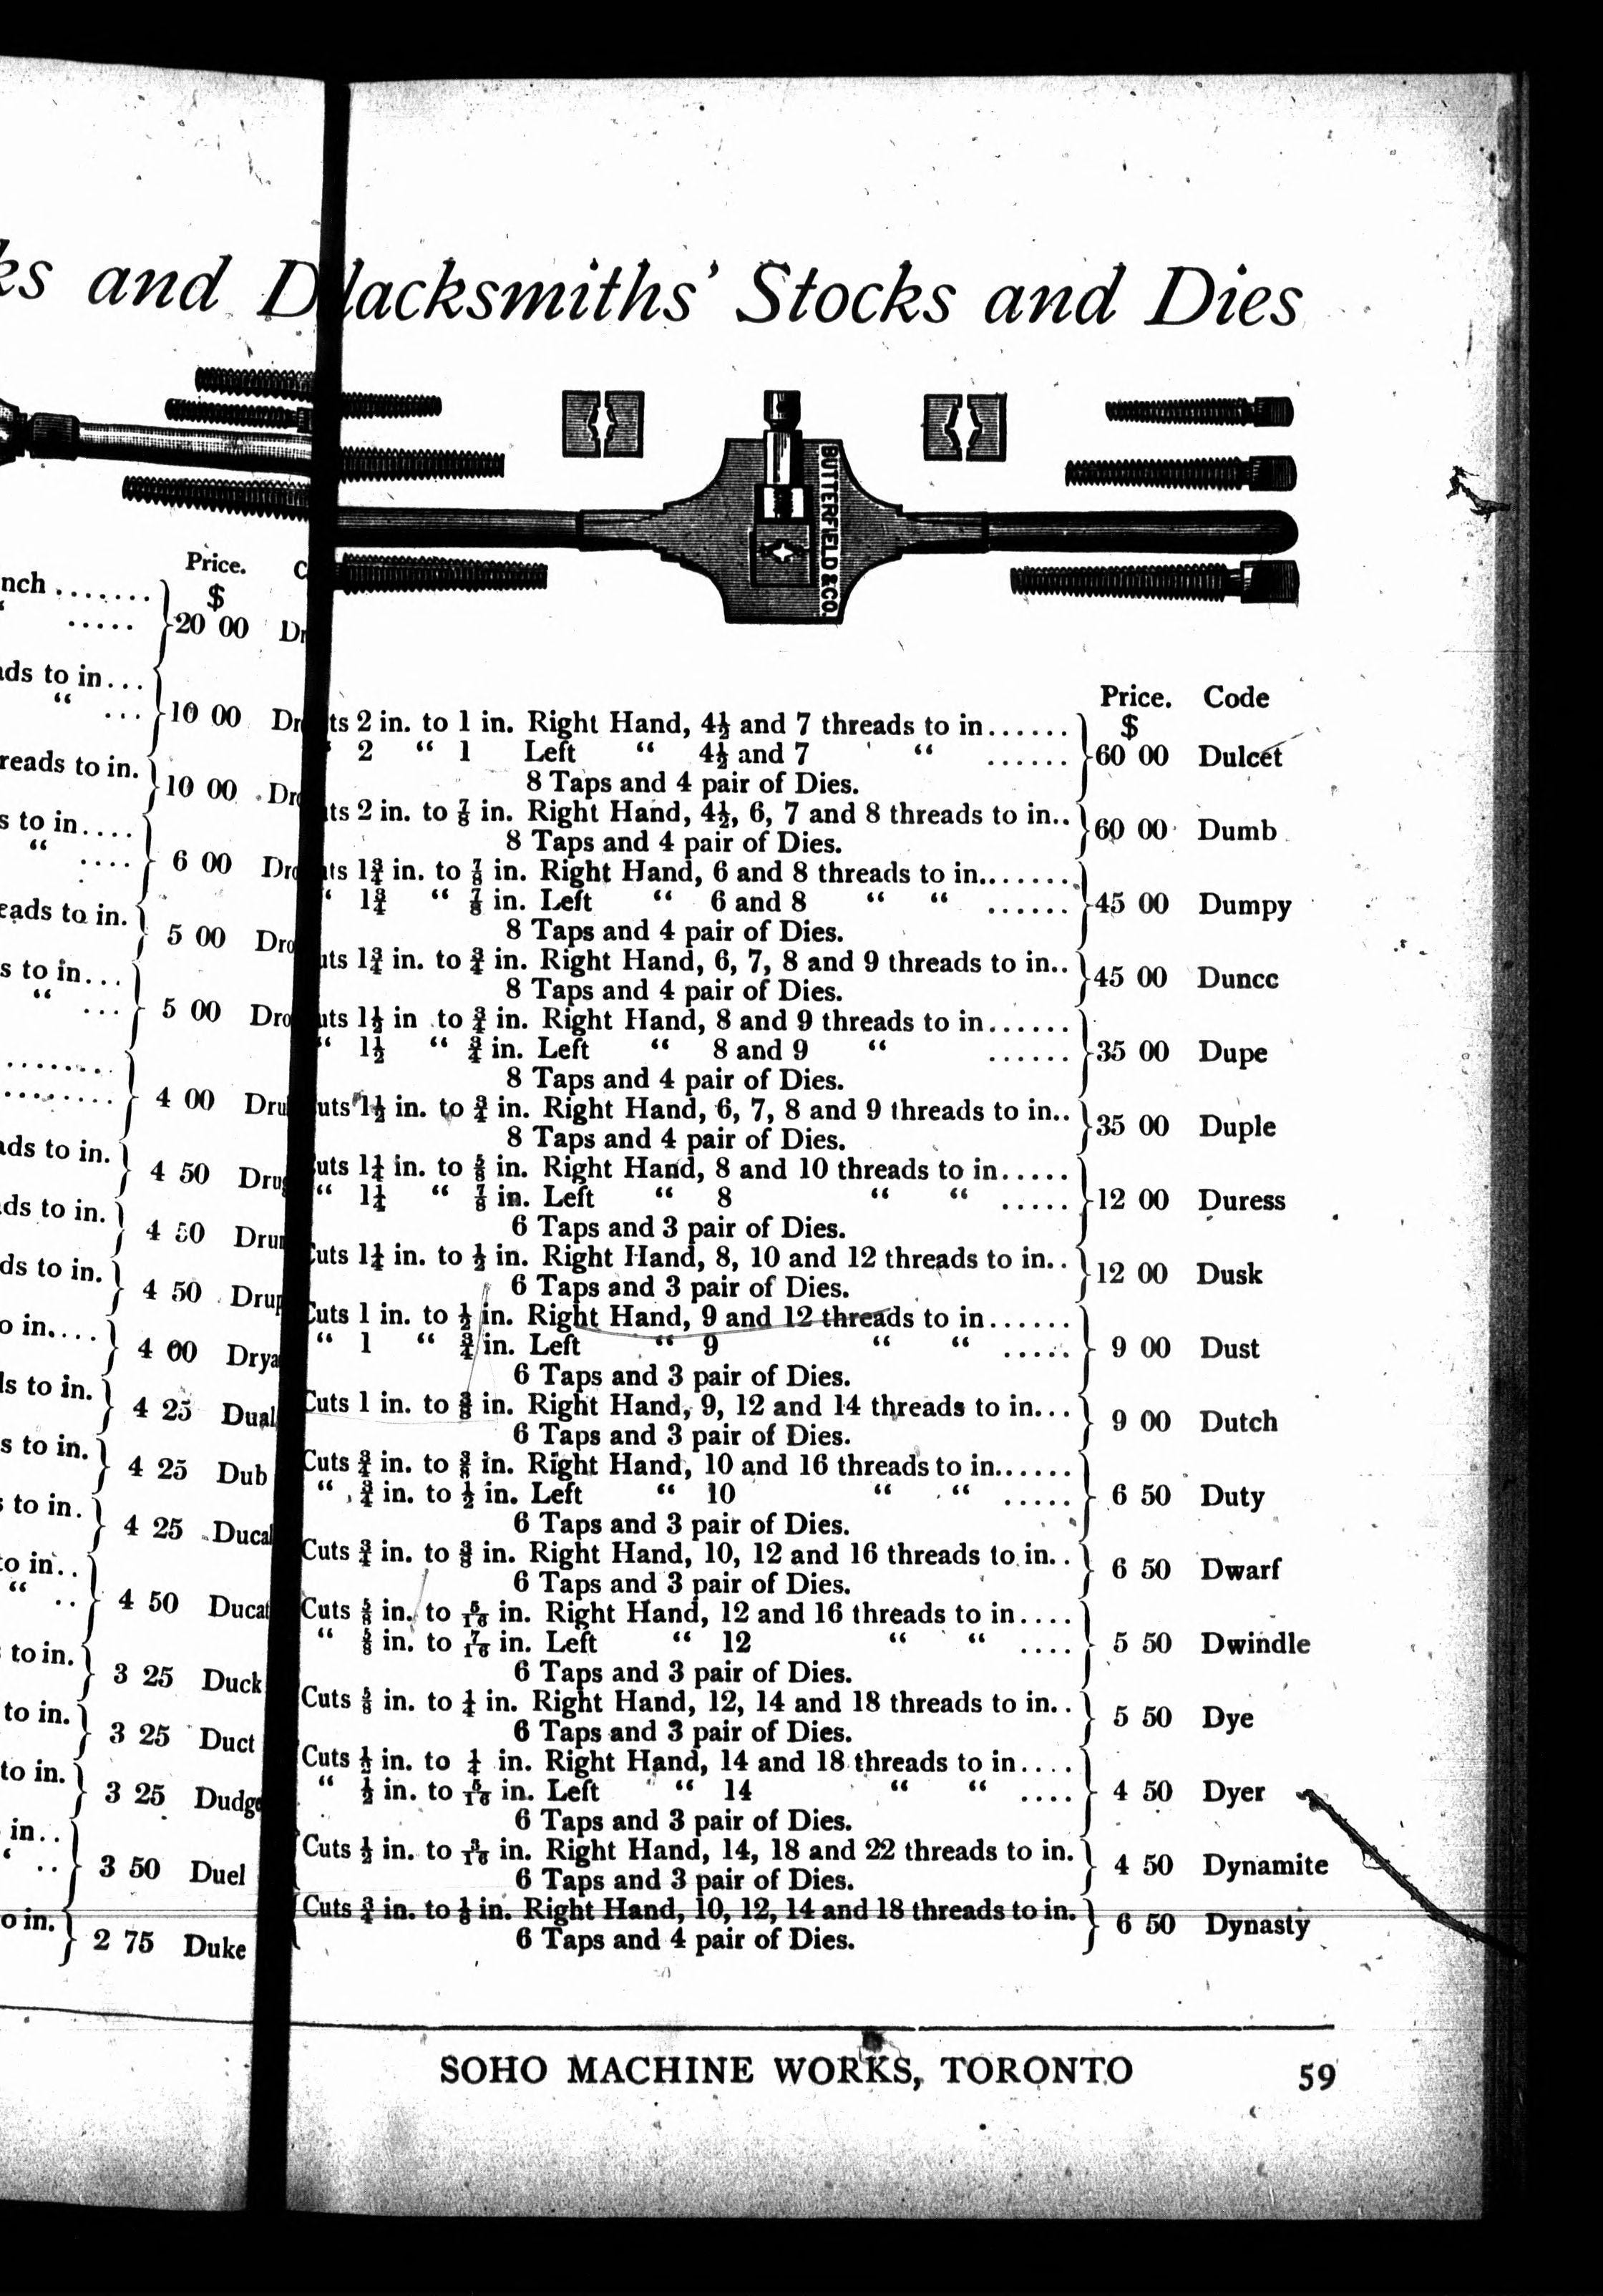 ks and D
Price.
$
nch .......
.....
20 00
ds to in...
“ ...
10 00
reads to in.
10 00
s to in....
“ ....
6 00
eads to in.
5 00
s to in...
“ ...
5 00
.........
.........
4 00
ds to in.
4 50
ds to in.
4 50
ds to in.
4 50
o in....
4 00
ls to in.
4 25 Dual
s to in.
4 25 Dub
to in.
4 25 Ducal
to in..
“ ..
4 50 Ducat
to in.
3 25 Duck
to in.
3 25 Duct
to in.
3 25 Dudge
in..
“ ..
3 50 Duel
o in.
2 75 Duke
lacksmiths’ Stocks and Dies
BUTTERFIELD & CO.
Price. Code
$
ts 2 in. to 1 in. Right Hand, 4½ and 7 threads to in......
“ 2 “ 1 Left “ 4½ and 7 “ ...... 60 00 Dulcet
8 Taps and 4 pair of Dies.
ts 2 in. to ⅞ in. Right Hand, 4½, 6, 7 and 8 threads to in.. 60 00 Dumb
8 Taps and 4 pair of Dies.
ts 1¾ in. to ⅞ in. Right Hand, 6 and 8 threads to in.......
“ 1¾ “ ⅞ in. Left “ 6 and 8 “ “ ...... 45 00 Dumpy
8 Taps and 4 pair of Dies.
uts 1¾ in. to ¾ in. Right Hand, 6, 7, 8 and 9 threads to in.. 45 00 Dunce
8 Taps and 4 pair of Dies.
uts 1½ in to ¾ in. Right Hand, 8 and 9 threads to in......
“ 1½ “ ¾ in. Left “ 8 and 9 “ ...... 35 00 Dupe
8 Taps and 4 pair of Dies.
uts 1½ in. to ¾ in. Right Hand, 6, 7, 8 and 9 threads to in.. 35 00 Duple
8 Taps and 4 pair of Dies.
uts 1¼ in. to ⅝ in. Right Hand, 8 and 10 threads to in.....
“ 1¼ “ ⅞ in. Left “ 8 “ “ ..... 12 00 Duress
6 Taps and 3 pair of Dies.
Cuts 1¼ in. to ½ in. Right Hand, 8, 10 and 12 threads to in.. 12 00 Dusk
6 Taps and 3 pair of Dies.
Cuts 1 in. to ½ in. Right Hand, 9 and 12 threads to in......
“ 1 “ ¾ in. Left “ 9 “ “ ..... 9 00 Dust
6 Taps and 3 pair of Dies.
Cuts 1 in. to ⅜ in. Right Hand, 9, 12 and 14 threads to in... 9 00 Dutch
6 Taps and 3 pair of Dies.
Cuts ¾ in. to ⅜ in. Right Hand, 10 and 16 threads to in......
“ ¾ in. to ½ in. Left “ 10 “ “ ..... 6 50 Duty
6 Taps and 3 pair of Dies.
Cuts ¾ in. to ⅜ in. Right Hand, 10, 12 and 16 threads to in.. 6 50 Dwarf
6 Taps and 3 pair of Dies.
Cuts ⅝ in. to 5/16 in. Right Hand, 12 and 16 threads to in....
“ ⅝ in. to 7/16 in. Left “ 12 “ “ .... 5 50 Dwindle
6 Taps and 3 pair of Dies.
Cuts ⅝ in. to ¼ in. Right Hand, 12, 14 and 18 threads to in.. 5 50 Dye
6 Taps and 3 pair of Dies.
Cuts ½ in. to ¼ in. Right Hand, 14 and 18 threads to in....
“ ½ in. to 5/16 in. Left “ 14 “ “ .... 4 50 Dyer
6 Taps and 3 pair of Dies.
Cuts ½ in. to 3/16 in. Right Hand, 14, 18 and 22 threads to in. 4 50 Dynamite
6 Taps and 3 pair of Dies.
Cuts ¾ in. to ⅛ in. Right Hand, 10, 12, 14 and 18 threads to in. 6 50 Dynasty
6 Taps and 4 pair of Dies.
SOHO MACHINE WORKS, TORONTO 59